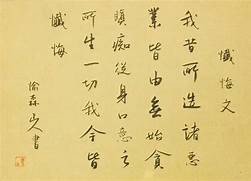 懺悔文
我昔所造諸惡
業皆由無始貪
瞋痴從身口意之
所生一切我今皆
懺悔
森山人書